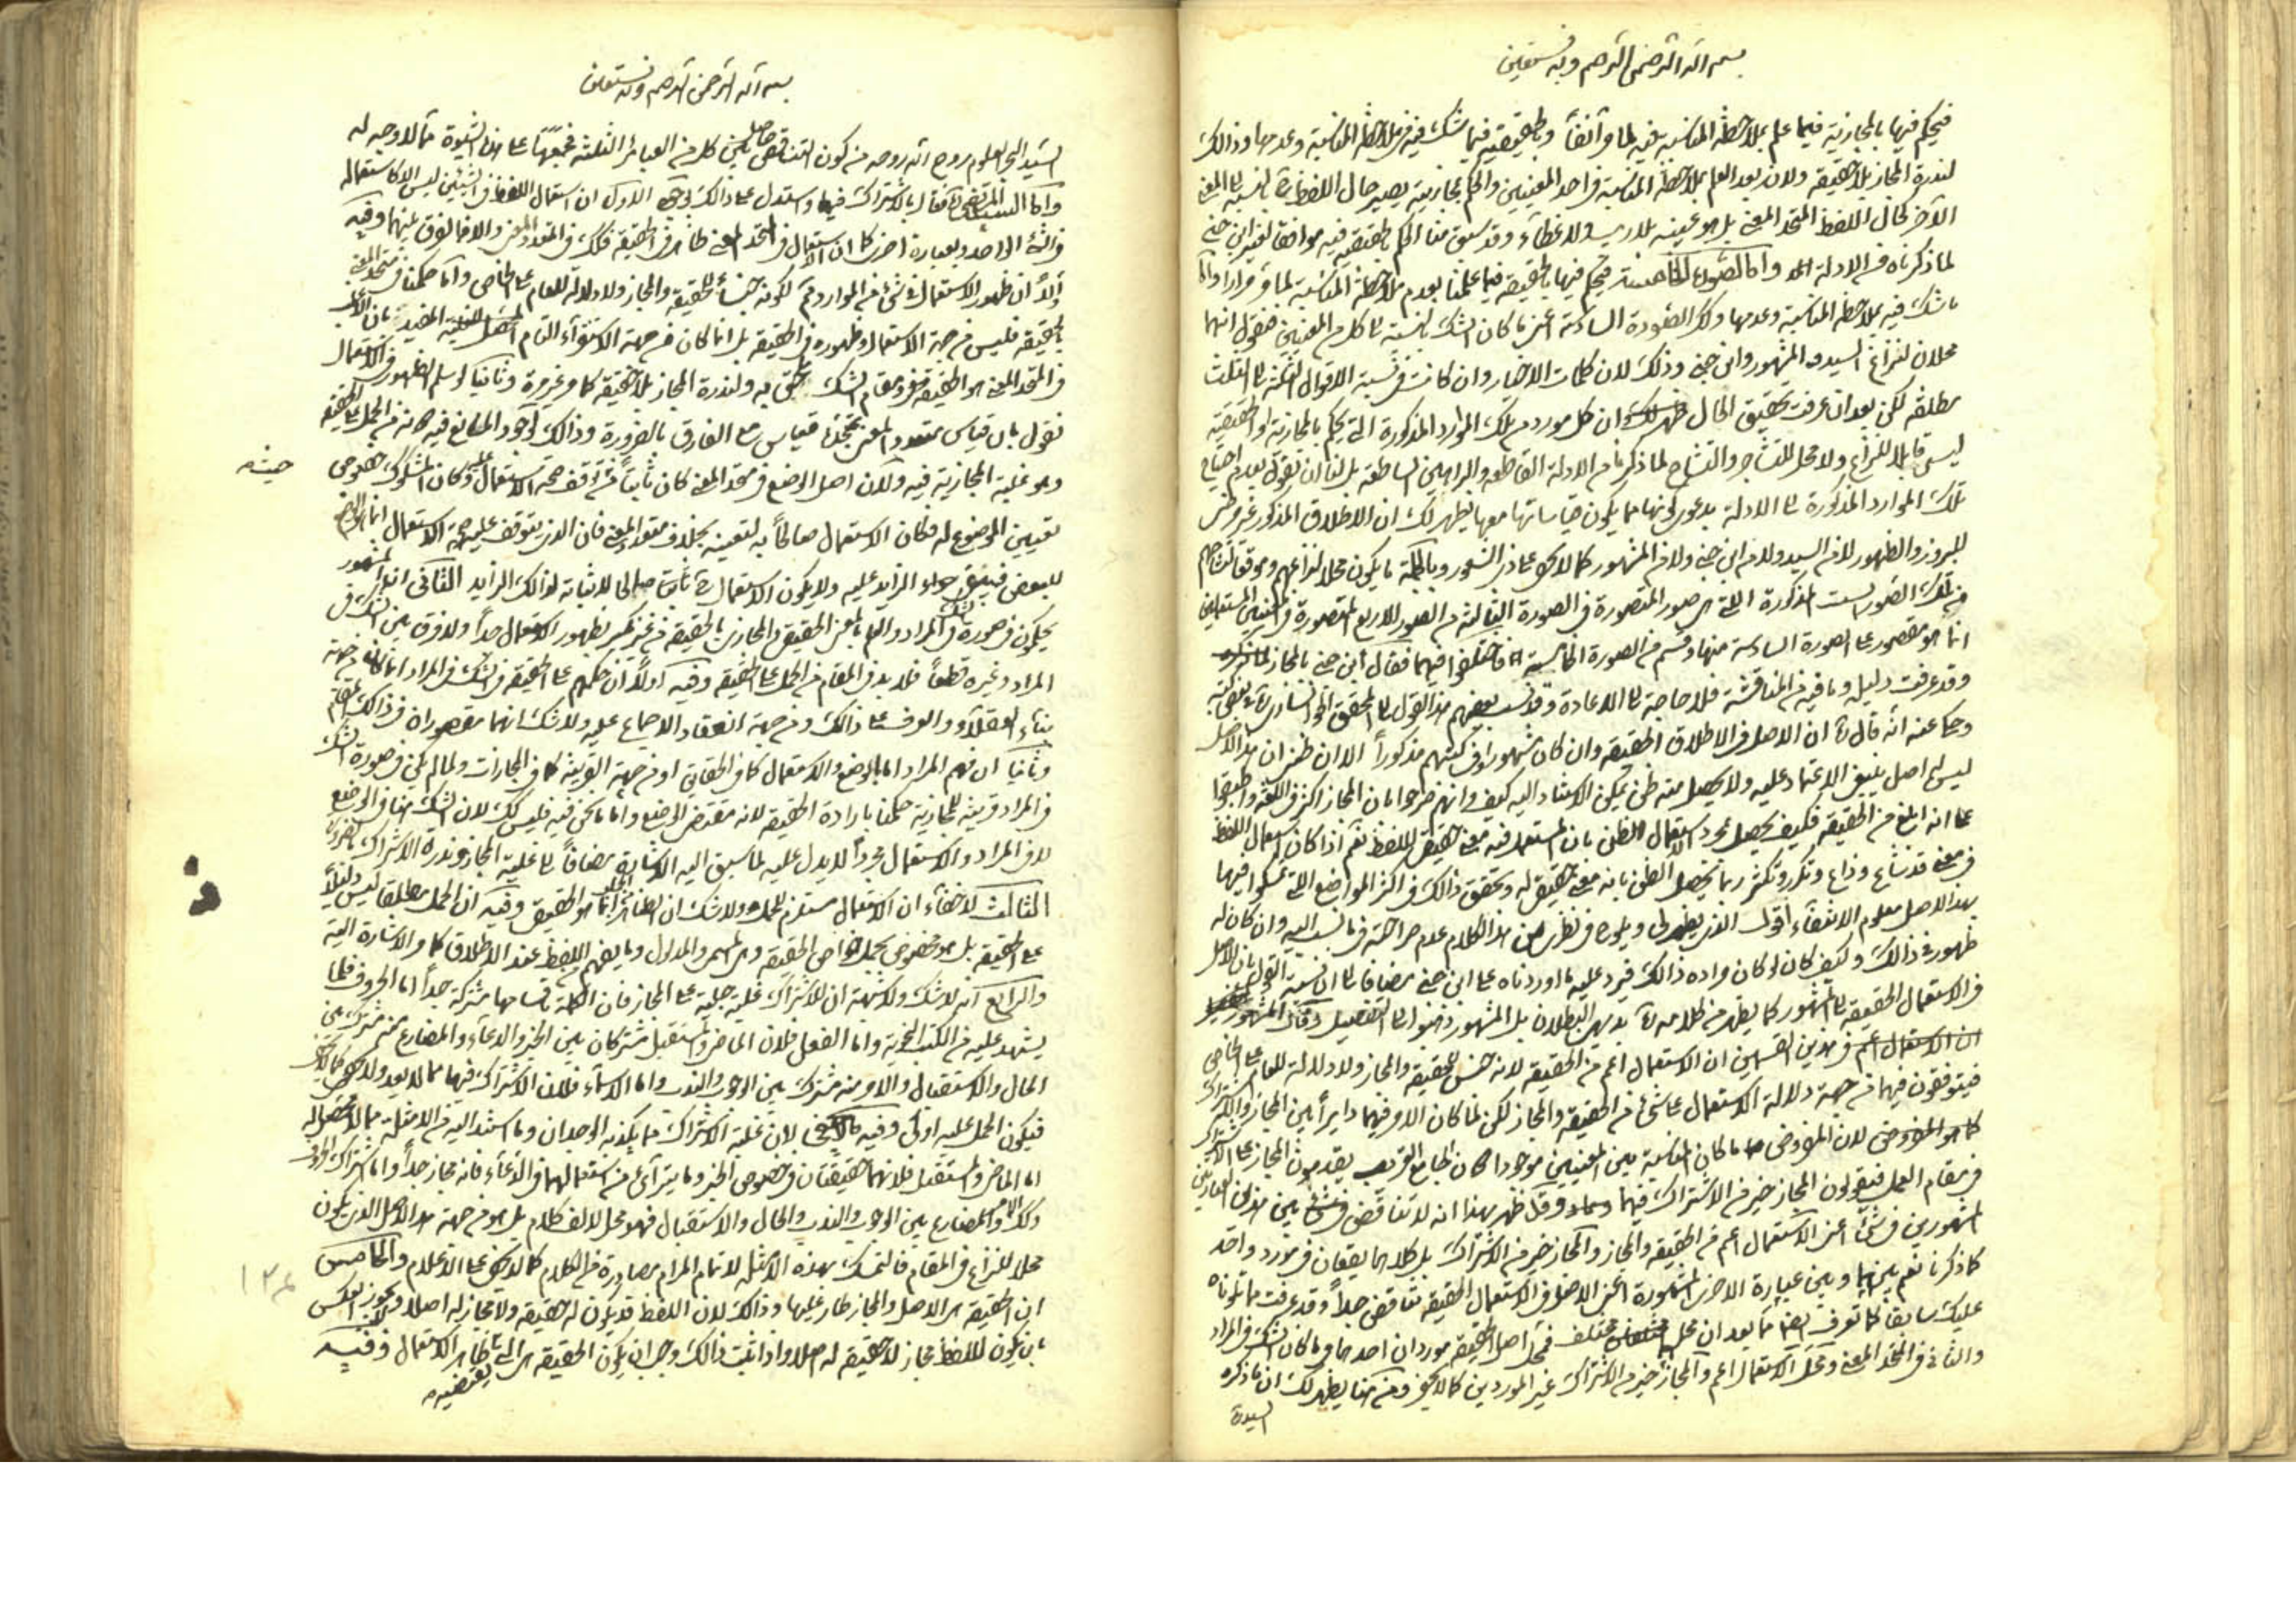 بسم الله الرحمن الرحيم وبه نستعين
فيحكم فيها بالمجازية فيما علم بملاحظة المناسبة فيه لما مر آنفاً وبالحقيقة فيما شك فيه في ملاحظة المناسبة وعدمها وذالك
لندرة المجاز بلا حقيقة ولان بعد العلم بملاحظة المناسبة في احد المعنيين والحكم بمجازيته يصير حال اللفظ بالنسبة الى المعنى
الآخر كحال اللفظ المتحد المعنى بل هو عينه بلا ريب ولا غطاء وقد سبق منا الحكم بالحقيقة فيه موافقا لغير ابن جني
لما ذكرناه من الادلة واما الصورة الخامسة فيحكم فيها بالحقيقة فيما علمنا بعدم ملاحظة المناسبة لما مر مرارا واما
ما شك فيه بملاحظة المناسبة وعدمها وكذا الصورة السادسة اعني ما كان الشك بالنسبة الى كل من المعنيين فنقول انهما
محلان لنزاع السيد والمشهور وابن جني وذلك لان كلمات الاخيار وان كانت في نسبة الاقوال الثلثة الى الثلث
مطلقة لكن بعد ان عرفت تحقيق الحال ظهر لك ان كل مورد من تلك الموارد المذكورة التي يحكم بالمجازية او الحقيقة
ليس قابلا للنزاع ولا محل للتشاجر والتشاح لما ذكرنا من الادلة القاطعة والبراهين الساطعة بل لنا ان نقول بعدم احتياج
تلك الموارد المذكورة الى الادلة بدعوى كونها مما يكون قياساتها معها فيظهر لك ان الاطلاق المذكور غير مضر
للبروز والظهور لا من السيد ولا من ابن جني ولا من المشهور كما لا يخفى على ذي الشعور وبالجملة ما يكون محلا لنزاعهم وموقعا لتشاحهم
من تلك الصور الست المذكورة التي هي صور المتصورة في الصورة الثالثة من الصور الاربع المتصورة في المعنيين المستعملين
انما هو مقصور على الصورة السادسة منها وقسم من الصورة الخامسة فاختلفوا فيهما فقال ابن جني بالمجاز
وقد عرفت دليله وما فيه من المناقشة فلا حاجة الى الاعادة وقد نسب بعضهم هذا القول الى المحقق الخوانساري
وحكى عنه انه قال ان الاصل في الاطلاق الحقيقة وان كان مشهورا وفي كتبهم مذكوراً الا ان ظني ان هذا الاصل
ليس له اصل ينبغي الاعتماد عليه ولا يحصل منه ظن يمكن الاستناد اليه كيف وانهم صرحوا بان المجاز اكثر في اللغة واطبقوا
على انه ابلغ من الحقيقة فكيف يحصل بمجرد استعمال الظن بان المستعمل فيه معنى حقيقي للفظ نعم اذا كان استعمال اللفظ
في معنى قد شاع وذاع وتكرر وتكثر ربما يحصل الظن بانه معنى حقيقي له وتحقق ذالك في اكثر المواضع التي تمسكوا فيها
بهذا الاصل معلوم الانتفاء اقول الذي يظهر لي ويلوح في نظري من هذا الكلام عدم صراحته فيما نسب اليه وان كان له
ظهور في ذالك وكيف كان لو كان مراده ذالك فيرد عليه ما اوردناه على ابن جني مضافا الى ان نسبة القول بان الاصل
في الاستعمال الحقيقة الى المشهور كما يظهر من كلامه بديهي البطلان بل المشهور ذهبوا الى التفصيل وقال المشهور
ان الاستعمال اعم في هذين القسمين ان الاستعمال اعم من الحقيقة لانه جنس للحقيقة والمجاز ولا دلالة للعام على الخاص
فيتوقفون فيهما من جهة دلالة الاستعمال على شيء من الحقيقة والمجاز لكن لما كان الامر فيهما دايراً بين المجاز والاشتراك
كما هو المفروض لان المفروض ما كان المناسبة بين المعنيين موجودا كان الجامع القريب يقدمون المجاز على الاشتراك
في مقام العمل فيقولون المجاز خير من الاشتراك فيهما وقد ظهر بهذا انه لا تناقض في شيء بين هذين العبارتين
المشهورين في شيء اعني الاستعمال اعم من الحقيقة والمجاز والمجاز خير من الاشتراك بل كلاهما يقعان في مورد واحد
كما ذكرنا نعم بينهما وبين عبارة الاخرى المشهورة اعني الاصل في الاستعمال الحقيقة تناقض جداً وقد عرفت ما تلوناه
عليك سابقا كما تعرف ايضا ما بعد ان محل مختلف فمحل اصل الحقيقة موردان احدهما ما كان الشك في المراد
والثاني في المتحد المعنى ومحل الاستعمال اعم والمجاز خير من الاشتراك غير الموردين كما لا يخفى ومن هنا يظهر لك ان ما ذكره
السيد
بسم الله الرحمن الرحيم وبه نستعين
السيد البحر العلوم روح الله روحه من كون التناقض حاصل بين كل من العبائر الثلثة مما لا وجه له
واما السيد المرتضى فقال بالاشتراك فيها واستدل على ذالك بوجوه الاول ان استعمال اللفظ في الشيئين ليس الا كاستعماله
في الشيء الواحد وبعبارة اخرى كما ان الاستعمال في المتحد المعنى ظاهر في الحقيقة فكذا في المتعدد المعنى والا فما الفرق بينهما وفيه
اولاً ان ظهور الاستعمال في شيء من الموارد لكونه جنساً للحقيقة والمجاز ولا دلالة للعام على الخاص واما حكمنا في متحد المعنى
بالحقيقة فليس من جهة الاستعمال وظهوره في الحقيقة بل انما كان من جهة الاستقراء التام بان الاغلب
في المتحد المعنى هو الحقيقة ففي مقام الشك يلحق به ولندرة المجاز بلا حقيقة كما مر غير مرة وثانيا لو سلم الظهور في الاستعمال
نقول بان قياس متعدد المعنى بمتحده قياس مع الفارق بالضرورة وذالك لوجود المانع فيه من الحمل على الحقيقة
وهو غلبة المجازية فيه ولان اصل الوضع في متحد المعنى كان ثابتاً لتوقف صحة الاستعمال عليه وكان المشكوك خصوص
حيث
تعيين الموضوع له فكان الاستعمال صالحاً به لتعينه بخلاف متعدد المعنى فان الذي يتوقف عليه صحة الاستعمال انما هو الوضع
للبعض فيبقى جواز الزايد عليه ولا يكون الاستعمال صالحا لاثباته لذالك الزايد الثاني ان المشهور
يحكمون في صورة الشك في المراد والعلم بالمعنى الحقيقي والمجازي بالحقيقة من غير نكير لظهور الاستعمال جداً ولا فرق بين الشك في
المراد وغيره قطعاً فلا بد في المقام من الحمل على الحقيقة وفيه اولاً ان حكمهم على الحقيقة في الشك في المراد انما كان من جهة
بناء العقلاء والعرف على ذالك ومن جهة انعقاد الاجماع عليه ولا شك انهما مقصوران في ذالك المقام
وثانيا ان فهم المراد اما بالوضع والاستعمال كما في الحقايق او من جهة القرينة كما في المجازات ولما لم يكن في صورة الشك
في المراد قرينة للمجازية حكمنا بارادة الحقيقة لانه مقتضى الوضع واما ما نحن فيه فليس كك لان الشك هنا في الوضع
لا في المراد والاستعمال مجرداً لا يدل عليه لما سبق اليه الاشارة مضافاً الى غلبة المجاز وندرة الاشتراك
الثالث لا خفاء ان الاستعمال مستلزم للحمل ولا شك ان الظاهر من الحمل انما هو الحقيقي وفيه ان الحمل مطلقا ليس دليلاً
على الحقيقة بل هو مخصوص بحمل خواص الحقيقة وما يفهم من اللفظ عند الاطلاق كما مر الاشارة اليه
والرابع انه لا شك ولا شبهة ان للاشتراك غلبة جلية على المجاز فان الكلمة باقسامها مشتركة جداً اما الحروف فلما
يشهد عليه من الكتب النحوية واما الفعل فلان الماضي والمستقبل مشتركان بين الخبر والدعاء والمضارع منه مشترك بين
الحال والاستقبال والامر منه مشترك بين الوجوب والندب واما الاسماء فلان الاشتراك فيها مما لا يعد ولا يحصى
فيكون الحمل عليه اولى وفيه لان غلبة الاشتراك مما يكذبه الوجدان وما استند اليه من الامثلة مما لا محصل له
اما الماضي والمستقبل فلانهما حقيقتان في خصوص الخبر وما يترآى من استعمالهما في الدعاء فانه مجاز جداً واما اشتراك الحروف
وكذا الامر والمضارع بين الوجوب والندب والحال والاستقبال فهو محل لالف كلام بل هو من جهة هذا الاصل الذي يكون
محلا للنزاع في المقام فالتمسك بهذه الامثلة لاتمام المرام مصادرة في الكلام كما لا يخفى على الاعلام والخامس
١٣٤
ان الحقيقة هي الاصل والمجاز طار عليها وذالك لان اللفظ قد يكون له حقيقة ولا مجاز له اصلا ولا يجوز العكس
بان يكون للفظ مجاز لا حقيقة له اصلا واذا ثبت ذالك وجب ان يكون الحقيقة هي التي يقتضيها ظاهر الاستعمال وفيه